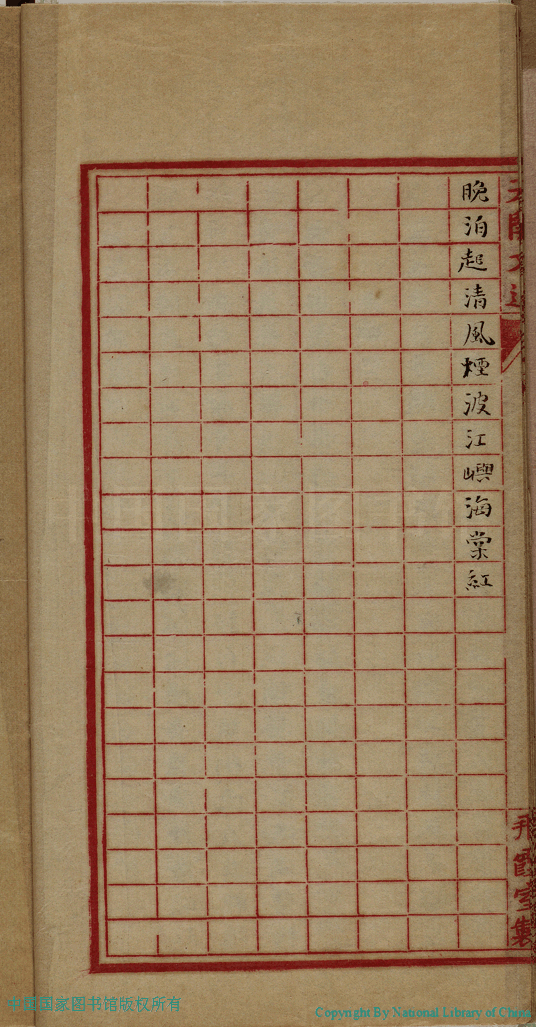 晚泊起清風煙波江嶼海棠紅
霞室製
中国国家图书馆版权所有
Copyright By National Library of China